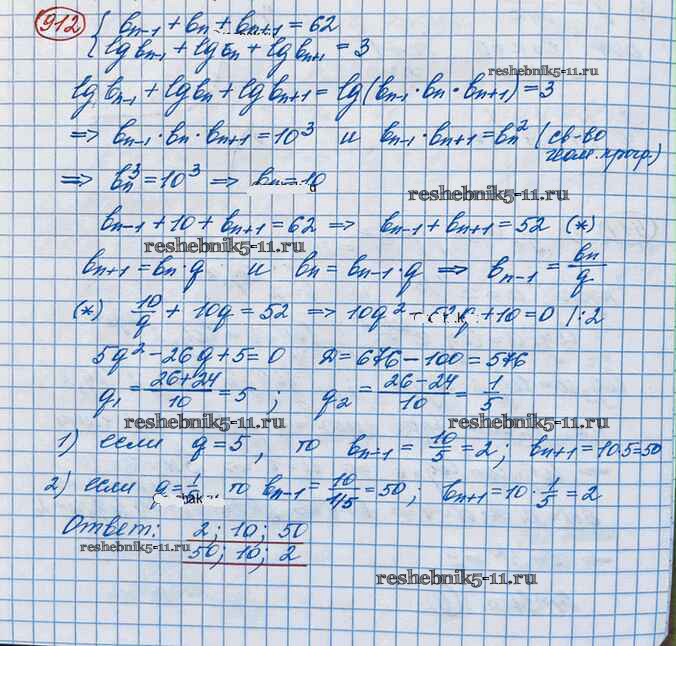 912 { bₙ₋₁ + bₙ + bₙ₊₁ = 62
lg bₙ₋₁ + lg bₙ + lg bₙ₊₁ = 3
reshebnik5-11.ru
lg bₙ₋₁ + lg bₙ + lg bₙ₊₁ = lg (bₙ₋₁ · bₙ · bₙ₊₁) = 3
⇒ bₙ₋₁ · bₙ · bₙ₊₁ = 10³ и bₙ₋₁ · bₙ₊₁ = bₙ² (св-во
геом. прогр.)
⇒ bₙ³ = 10³ ⇒ bₙ = 10
reshebnik5-11.ru
bₙ₋₁ + 10 + bₙ₊₁ = 62 ⇒ bₙ₋₁ + bₙ₊₁ = 52 (*)
reshebnik5-11.ru
bₙ₊₁ = bₙ · q и bₙ = bₙ₋₁ · q ⇒ bₙ₋₁ = bₙ/q
(*) 10/q + 10q = 52 ⇒ 10q² - 52q + 10 = 0 |:2
5q² - 26q + 5 = 0 Д = 676 - 100 = 576
q₁ = (26+24)/10 = 5 ; q₂ = (26-24)/10 = 1/5
reshebnik5-11.ru reshebnik5-11.ru
1) если q = 5, то bₙ₋₁ = 10/5 = 2; bₙ₊₁ = 10·5 = 50
2) если q = 1/5 то bₙ₋₁ = 10/(1/5) = 50; bₙ₊₁ = 10 · 1/5 = 2
Ответ: 2; 10; 50
reshebnik5-11.ru 50; 10; 2
reshebnik5-11.ru